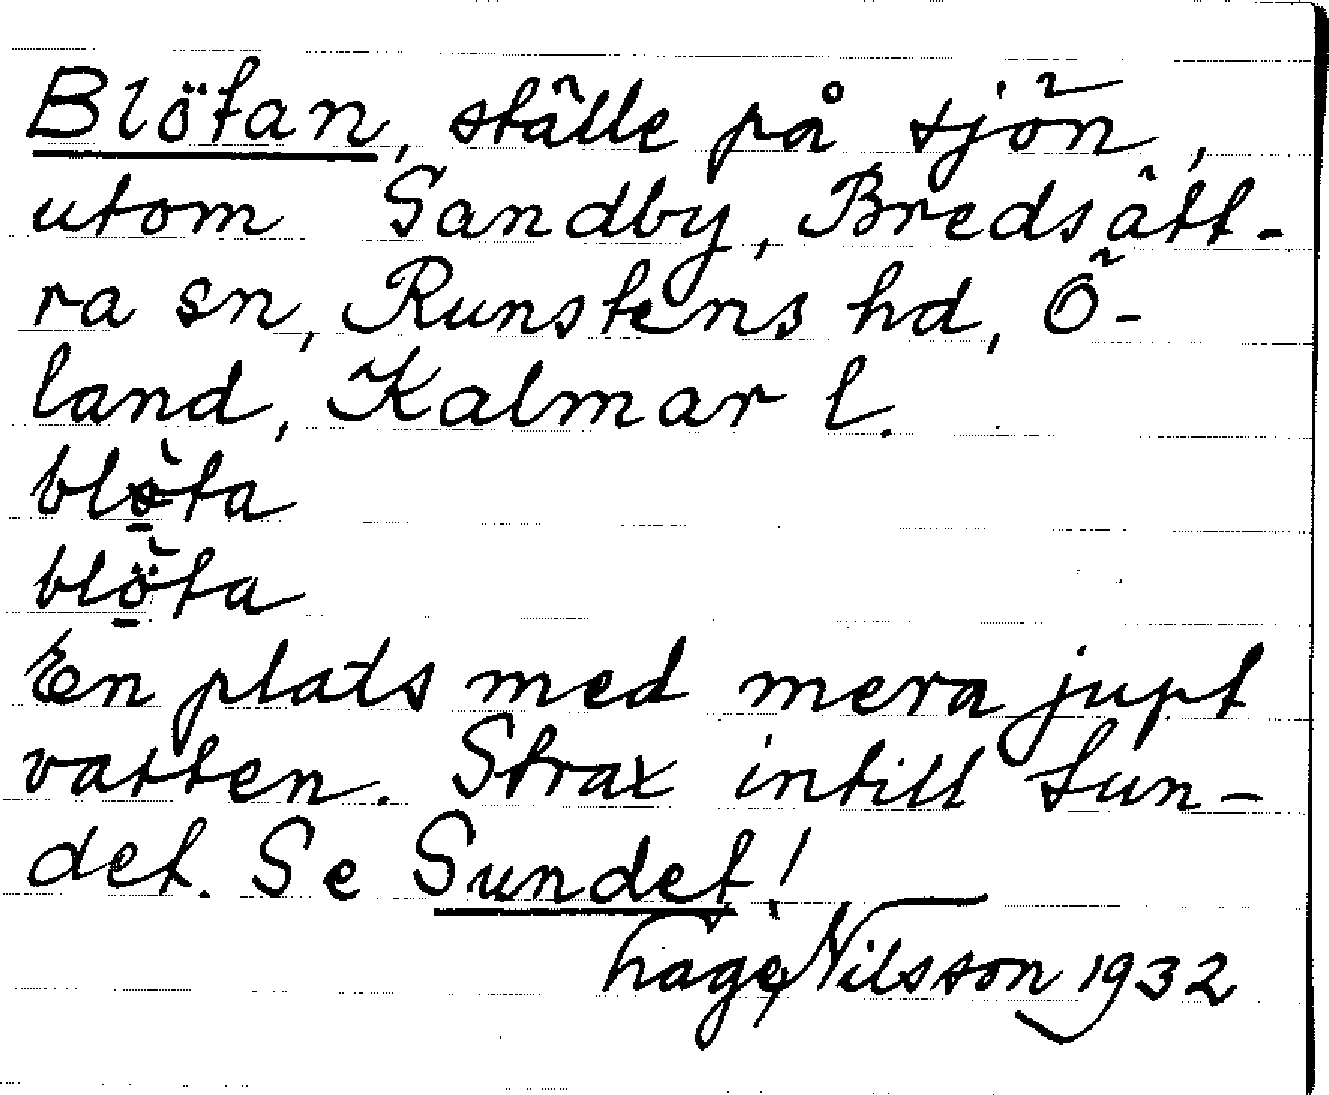 Blötan, ställe på sjön,
utom Sandby, Bredsätt-
ra sn, Runstens hd, Ö-
land, Kalmar l.
blò̱ta
blö̱̀ta
En plats med mera jupt
vatten. Strax intill Sun-
det. Se Sundet!
Hage Nilsson 1932